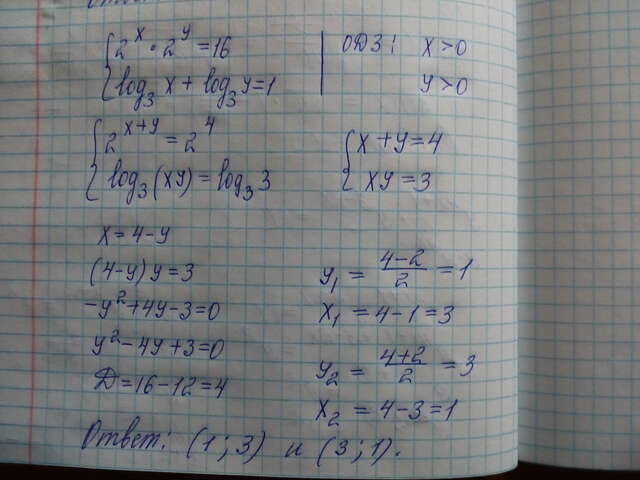 {2^x · 2^y = 16 | ОДЗ: x > 0
{log₃ x + log₃ y = 1 | y > 0
{2^(x+y) = 2^4
{log₃ (xy) = log₃ 3
{x + y = 4
{xy = 3
x = 4 - y
(4-y) y = 3
-y² + 4y - 3 = 0
y² - 4y + 3 = 0
Д = 16 - 12 = 4
y₁ = (4-2)/2 = 1
x₁ = 4 - 1 = 3
y₂ = (4+2)/2 = 3
x₂ = 4 - 3 = 1
Ответ: (1; 3) и (3; 1).